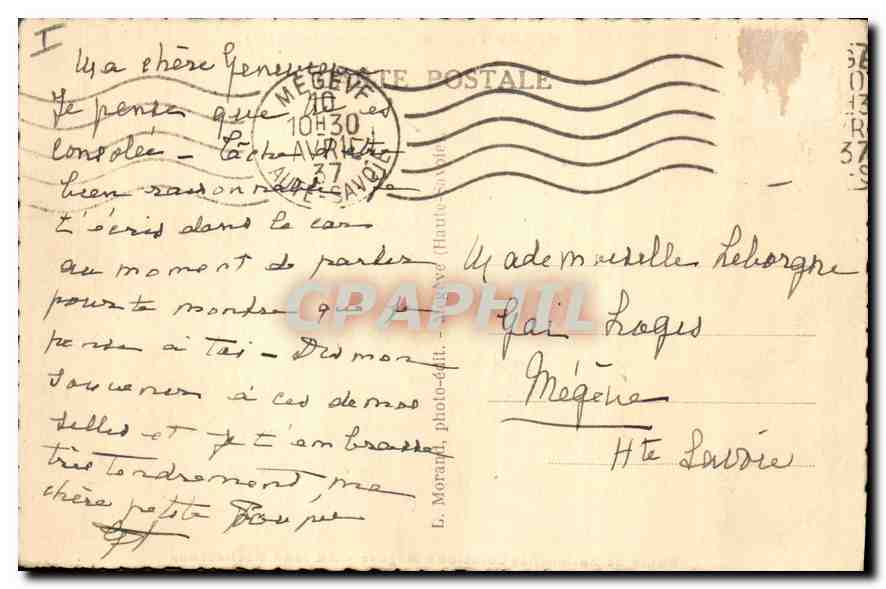 I
CARTE POSTALE
Ma chère Geneviève
Je pense que tu es
consolée - Tâche d'être
bien raisonnable Je
t'écris dans le car
au moment de partir
pour te montrer que je
pense à toi - Dis mon
souvenir à ces demoi
selles et je t'embrasse
très tendrement, ma
chère petite Poupée
MEGÈVE
10
10H30
AVRIL
37
HAUTE-SAVOIE
L. Morand, photo-édit. - Megève (Haute-Savoie)
Mademoiselle Leborgne
Gai Logis
Mégève
Hte Savoie
CPAPHIL